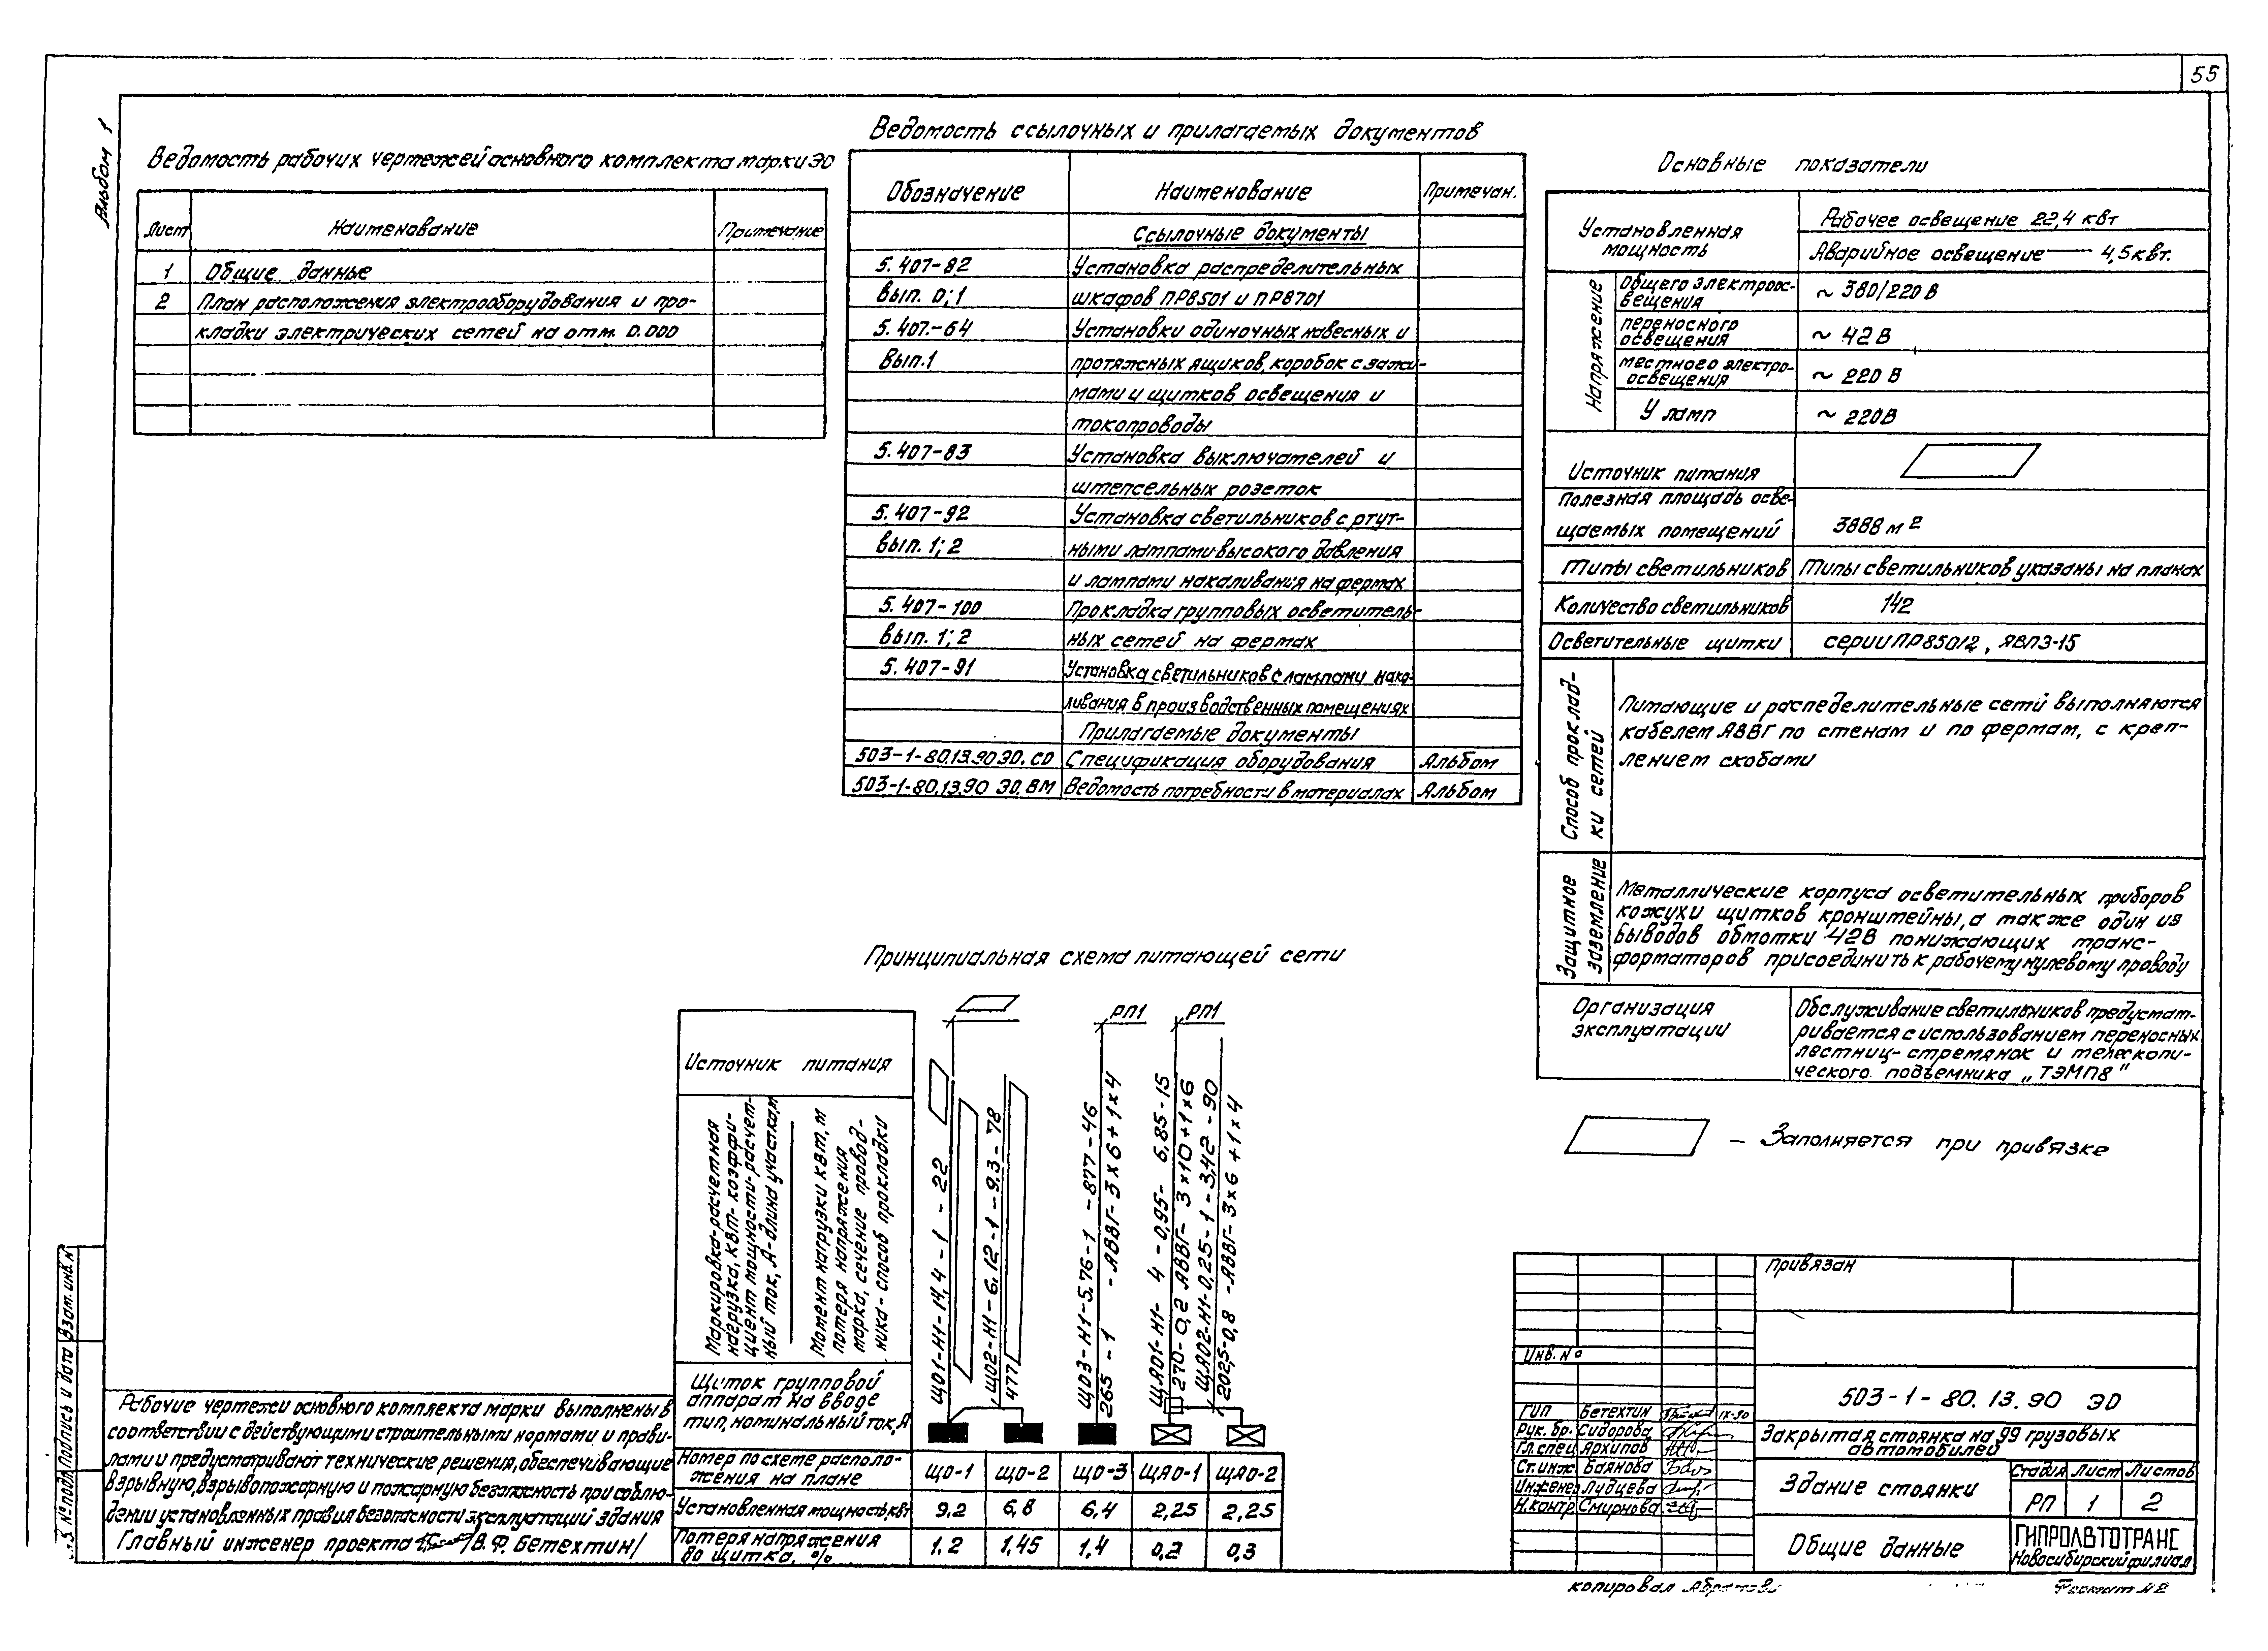 55
Альбом 1
Ведомость рабочих чертежей основного комплекта марки ЭО
Лист Наименование Примечание
1 Общие данные
2 План расположения электрооборудования и про-
кладки электрических сетей на отм. 0.000
Ведомость ссылочных и прилагаемых документов
Обозначение Наименование Примечан.
Ссылочные документы
5.407-82 Установка распределительных
вып. 0;1 шкафов ПР8501 и ПР8701
5.407-64 Установки одиночных навесных и
вып.1 протяжных ящиков, коробок с зажи-
мами и щитков освещения и
токопроводы
5.407-83 Установка выключателей и
штепсельных розеток
5.407-92 Установка светильников с ртут-
вып. 1; 2 ными лампами высокого давления
и лампами накаливания на фермах
5.407-100 Прокладка групповых осветитель-
вып. 1; 2 ных сетей на фермах
5.407-91 Установка светильников с лампами нака-
ливания в производственных помещениях
Прилагаемые документы
503-1-80.13.90 ЭО. СО Спецификация оборудования Альбом
503-1-80.13.90 ЭО. ВМ Ведомость потребности в материалах Альбом
Основные показатели
Установленная мощность
Рабочее освещение 22,4 квт
Аварийное освещение — 4,5 квт.
Напряжение
Общего электроос-
вещения ~ 380/220 В
переносного
освещения ~ 42 В
местного электро-
освещения ~ 220 В
У ламп ~ 220В
Источник питания
Полезная площадь осве-
щаемых помещений 3888 м2
Типы светильников Типы светильников указаны на планах
Количество светильников 142
Осветительные щитки серии ПР85012, ЯВПЗ-15
Способ проклад-
ки сетей
Питающие и распеделительные сети выполняются
кабелем АВВГ по стенам и по фермам, с креп-
лением скобами
Защитное
заземление
Металлические корпуса осветительных приборов
кожухи щитков кронштейны, а также один из
выводов обмотки 42В понижающих транс-
форматоров присоединить к рабочему нулевому проводу
Организация
эксплуатации
Обслуживание светильников предусмат-
ривается с использованием переносных
лестниц-стремянок и телескопи-
ческого подъемника „ТЭМП8"
— Заполняется при привязке
Принципиальная схема питающей сети
Источник питания
РП1
РП1
Маркировка-расчетная
нагрузка, квт-коэффи-
циент мощности-расчет-
ный ток, А-длина участка, м
Момент нагрузки квт, м
потеря напряжения
марка, сечение провод-
ника-способ прокладки
ЩО1-Н1-14,4-1-22
ЩО2-Н1-6,12-1-9,3-78
477
ЩО3-Н1-5,76-1-877-46
265-1 -АВВГ-3×6+1×4
ЩАО1-Н1-4-0,95-6,85-15
270-0,2 АВВГ-3×10+1×6
ЩАО2-Н1-0,25-1-3,42-90
202,5-0,8 -АВВГ-3×6+1×4
Щиток групповой
аппарат на вводе
тип, номинальный ток, А
Номер по схеме располо-
жения на плане ЩО-1 ЩО-2 ЩО-3 ЩАО-1 ЩАО-2
Установленная мощность, квт 9,2 6,8 6,4 2,25 2,25
Потеря напряжения
до щитка, % 1,2 1,45 1,4 0,2 0,3
Рабочие чертежи основного комплекта марки выполнены в
соответствии с действующими строительными нормами и прави-
лами и предусматривают технические решения, обеспечивающие
взрывную, взрывопожарную и пожарную безопасность при соблю-
дении установленных правил безопасности эксплуатаций здания
Главный инженер проекта /В. Ф. Бетехтин/
Взам. инв. №
Подпись и дата
№ подл.
Привязан
Инв. №
503-1-80.13.90 ЭО
ГИП Бетехтин IX-90
Рук. бр. Сидорова
Гл. спец Архипов
Ст. инж. Баянова
Инженер Лудцева
Н. контр. Смирнова
Закрытая стоянка на 99 грузовых
автомобилей
Здание стоянки
Стадия Лист Листов
РП 1 2
Общие данные
ГИПРОАВТОТРАНС
Новосибирский филиал
копировал
Формат А2